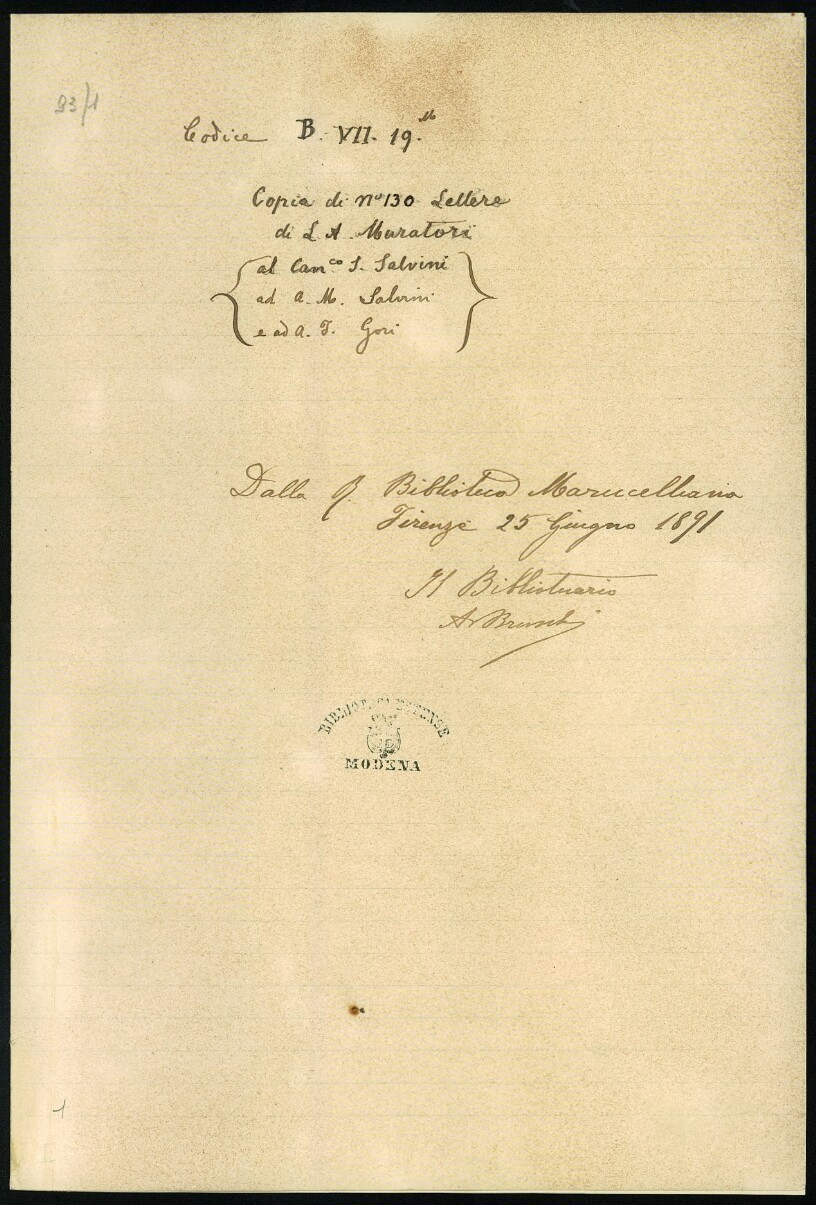 93/1
Codice B. VII. 19. M
Copia di nº 130 Lettere
di L A Muratori
al Can.co S. Salvini
ad A. M. Salvini
e ad A. F. Gori
Dalla R. Biblioteca Marucelliana
Firenze 25 Giugno 1891
Il Bibliotecario
A. Bruschi
BIBLIOTECA ESTENSE
MODENA
1